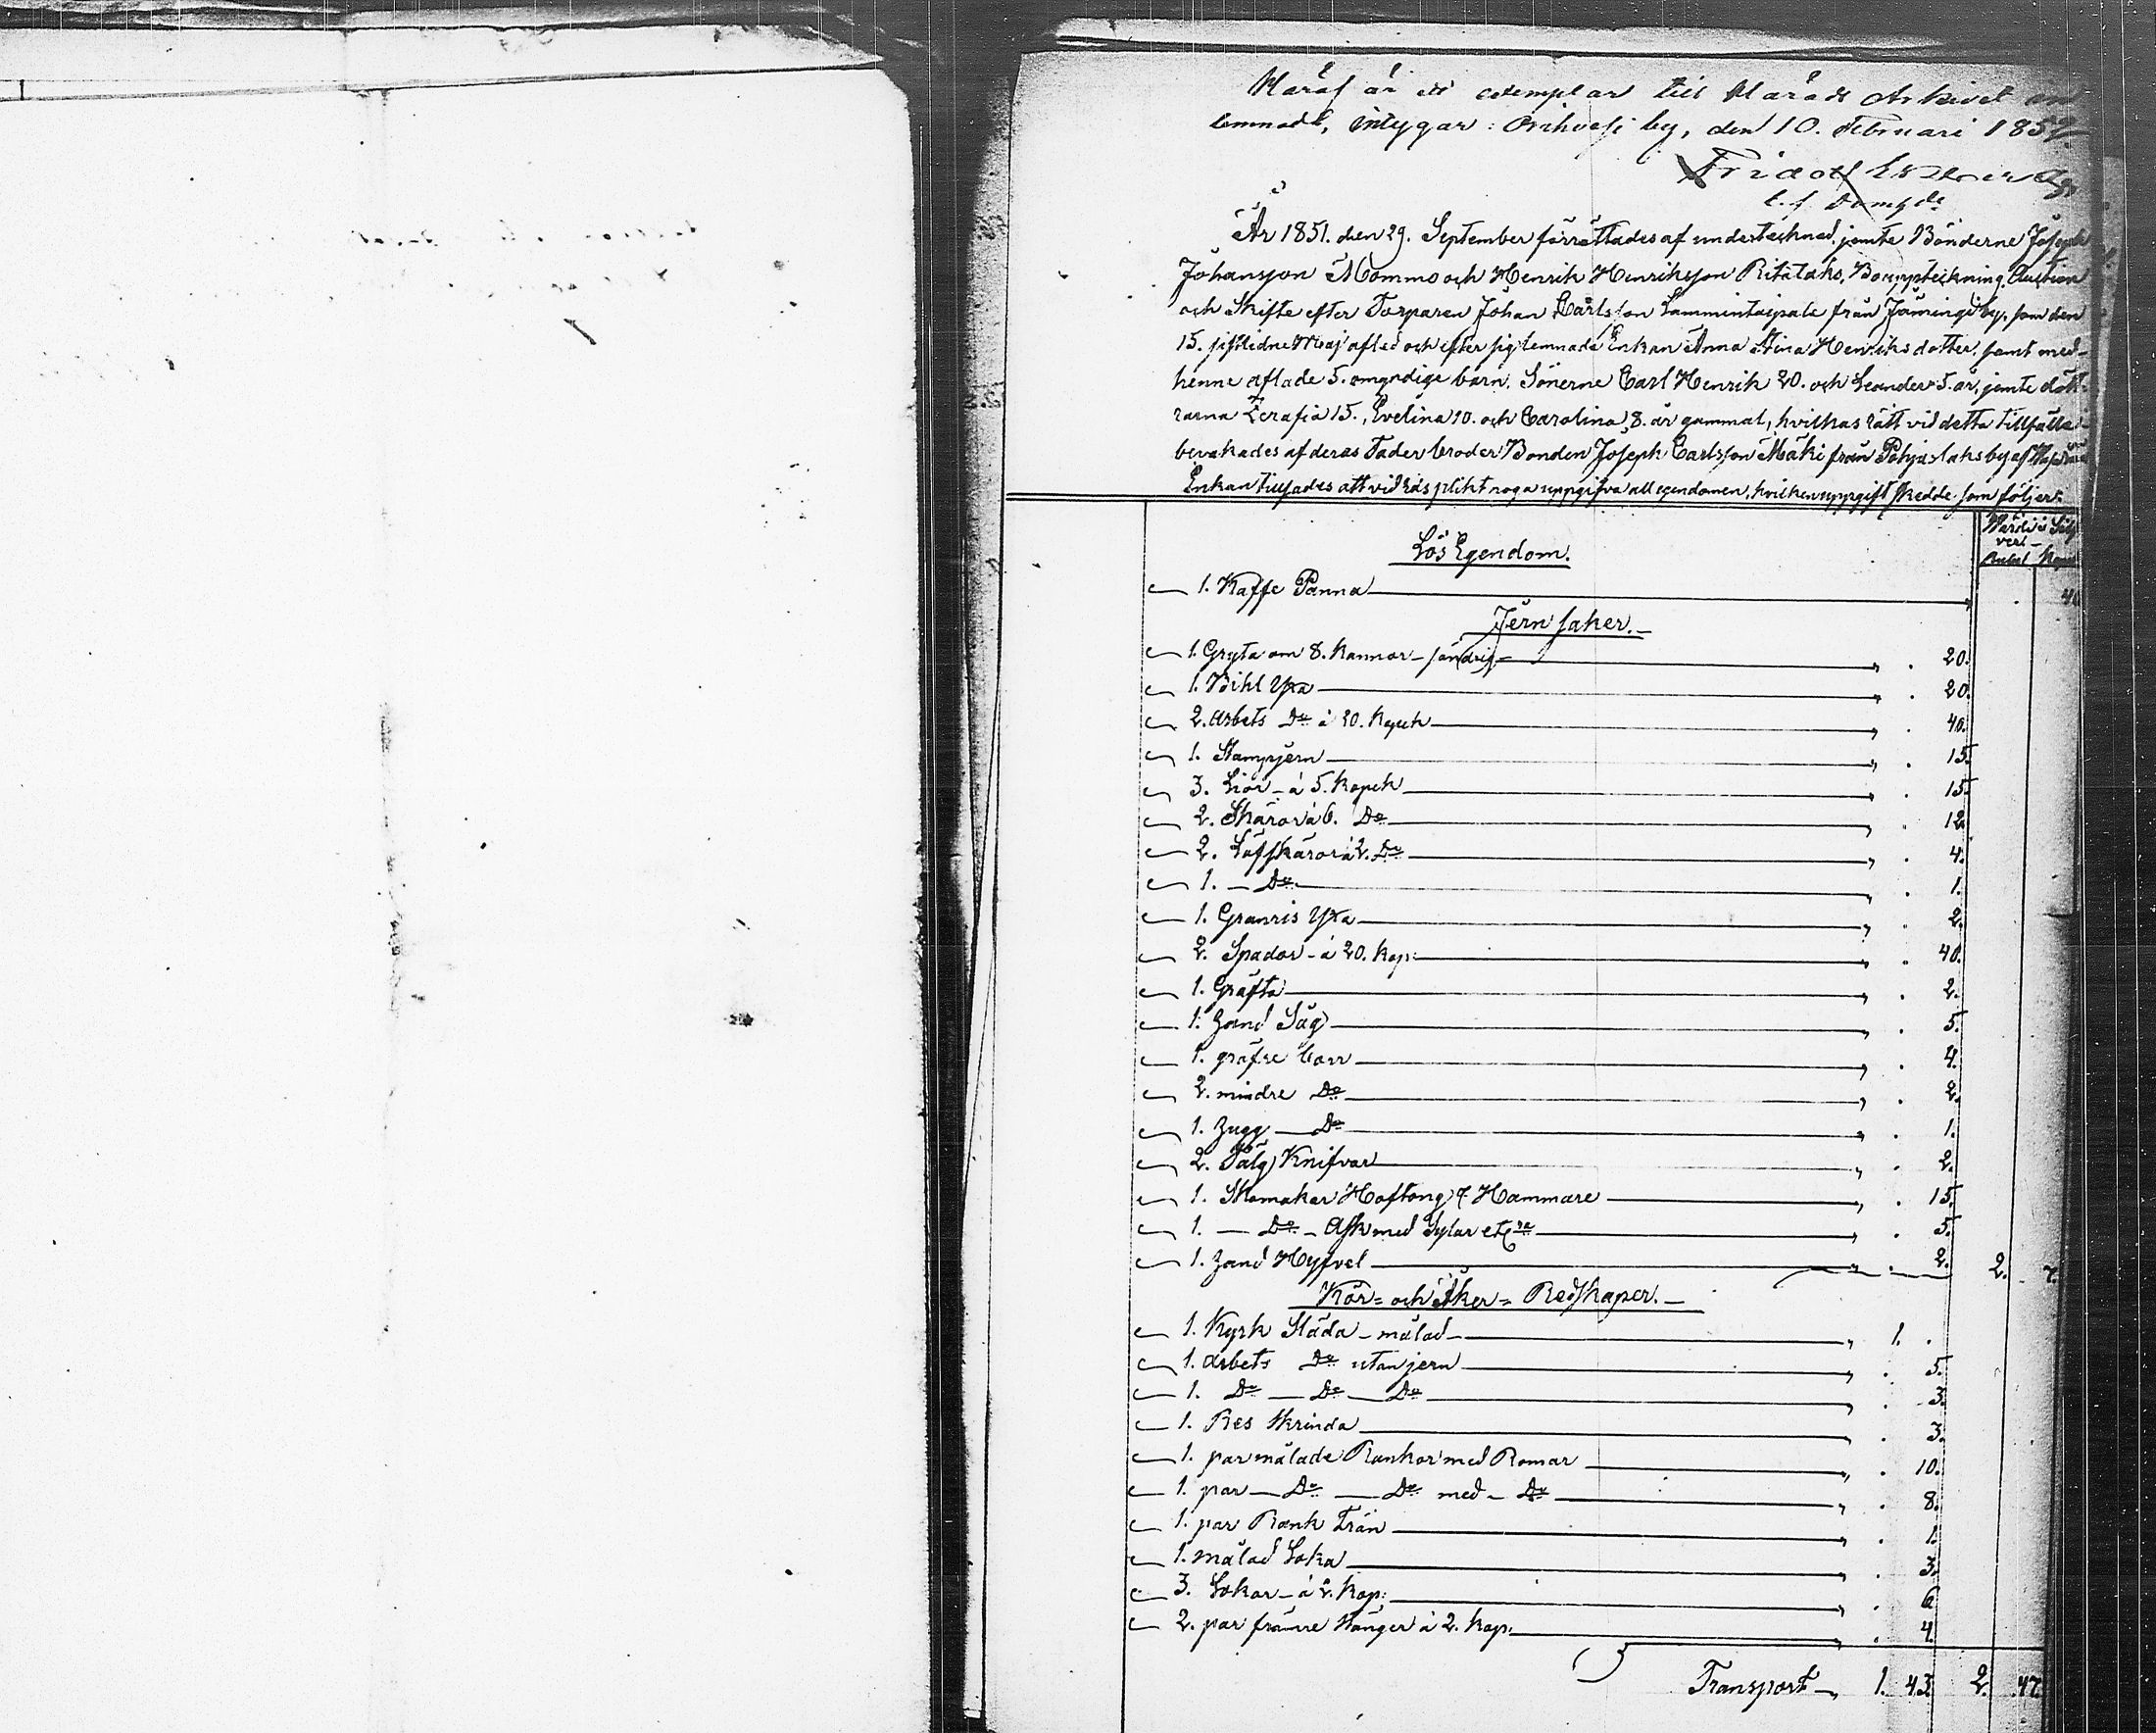 Häraf är ett exemplar till Härads Arkivet in
lemnadt, intygar: Orihvesi by, den 10. Februari 1852.
Fridolf
t. f. Domhde
År 1851. den 29. September förrättades af undertecknad jemte Bönderne Joseph
Johansson Mommo och Henrik Henriksson Ritalaks, Bouppteckning, Auction
och Skifte efter Torparen Johan Carlsson Lammintaipale från Jäminge by, som den
15. sistlidne Maj afled och efter sig lemnade Enkan Anna Stina Henriksdotter, samt med
henne aflade 5. omyndige barn, Sönerne Carl Henrik 20. och Leander 5. år, jemte dött-
rarna Serafia 15., Evelina 10. och Carolina 8. år gammal, hvilkas rätt vid detta tillfälle
bevakades af deras Faderbroder Bonden Joseph Carlsson Mäki från Pohjaslaks by af
Enkan tillsades att vid Eds plikt noga uppgifva all egendomen, hvilken uppgift skedde som följer:
Värde i Silf
ver.
Rubel Kopek
Lös Egendom.
1. Kaffe Panna 40
Jern saker.
1. Gryta om 8. Kannor - söndrig 20.
1. Bihl Yxa 20.
2. Arbets Do à 20. Kopek 40.
1. Stampjern 15.
3. Liar - à 5. Kopek 15.
2. Skäror à 6. Do 12.
2. Löfskäror à 2. Do 4.
1. - Do 1.
1. Granris Yxa 2.
2. Spador - à 20. Kop: 40.
1. Gräfta 2.
1. Hand Såg 5.
1. gröfre borr 4.
2. mindre Do 2.
1. Hugg Do 1.
2. Tälg Knifvar 2.
1. Skomakar Hoftong & Hammare 15.
1. - Do - Ask med Sylar etc 5.
1. Hand Hyfvel 2. 2. 7.
Kör= och Åker= Redskaper.
1. Kyrk Släda - målad 1.
1. Arbets Do utan jern 5.
1. Do - Do - Do 3.
1. Res Skrinda 3.
1. par målade Rankor med Romar 10.
1. par - Do - Do med - Do 8.
1. par Rank Trän 1.
1. målad Loka 3.
3. Lokor - à 2. Kop: 6
2. par främre Stänger à 2. Kop. 4.
Transport 1. 43. 2. 47.